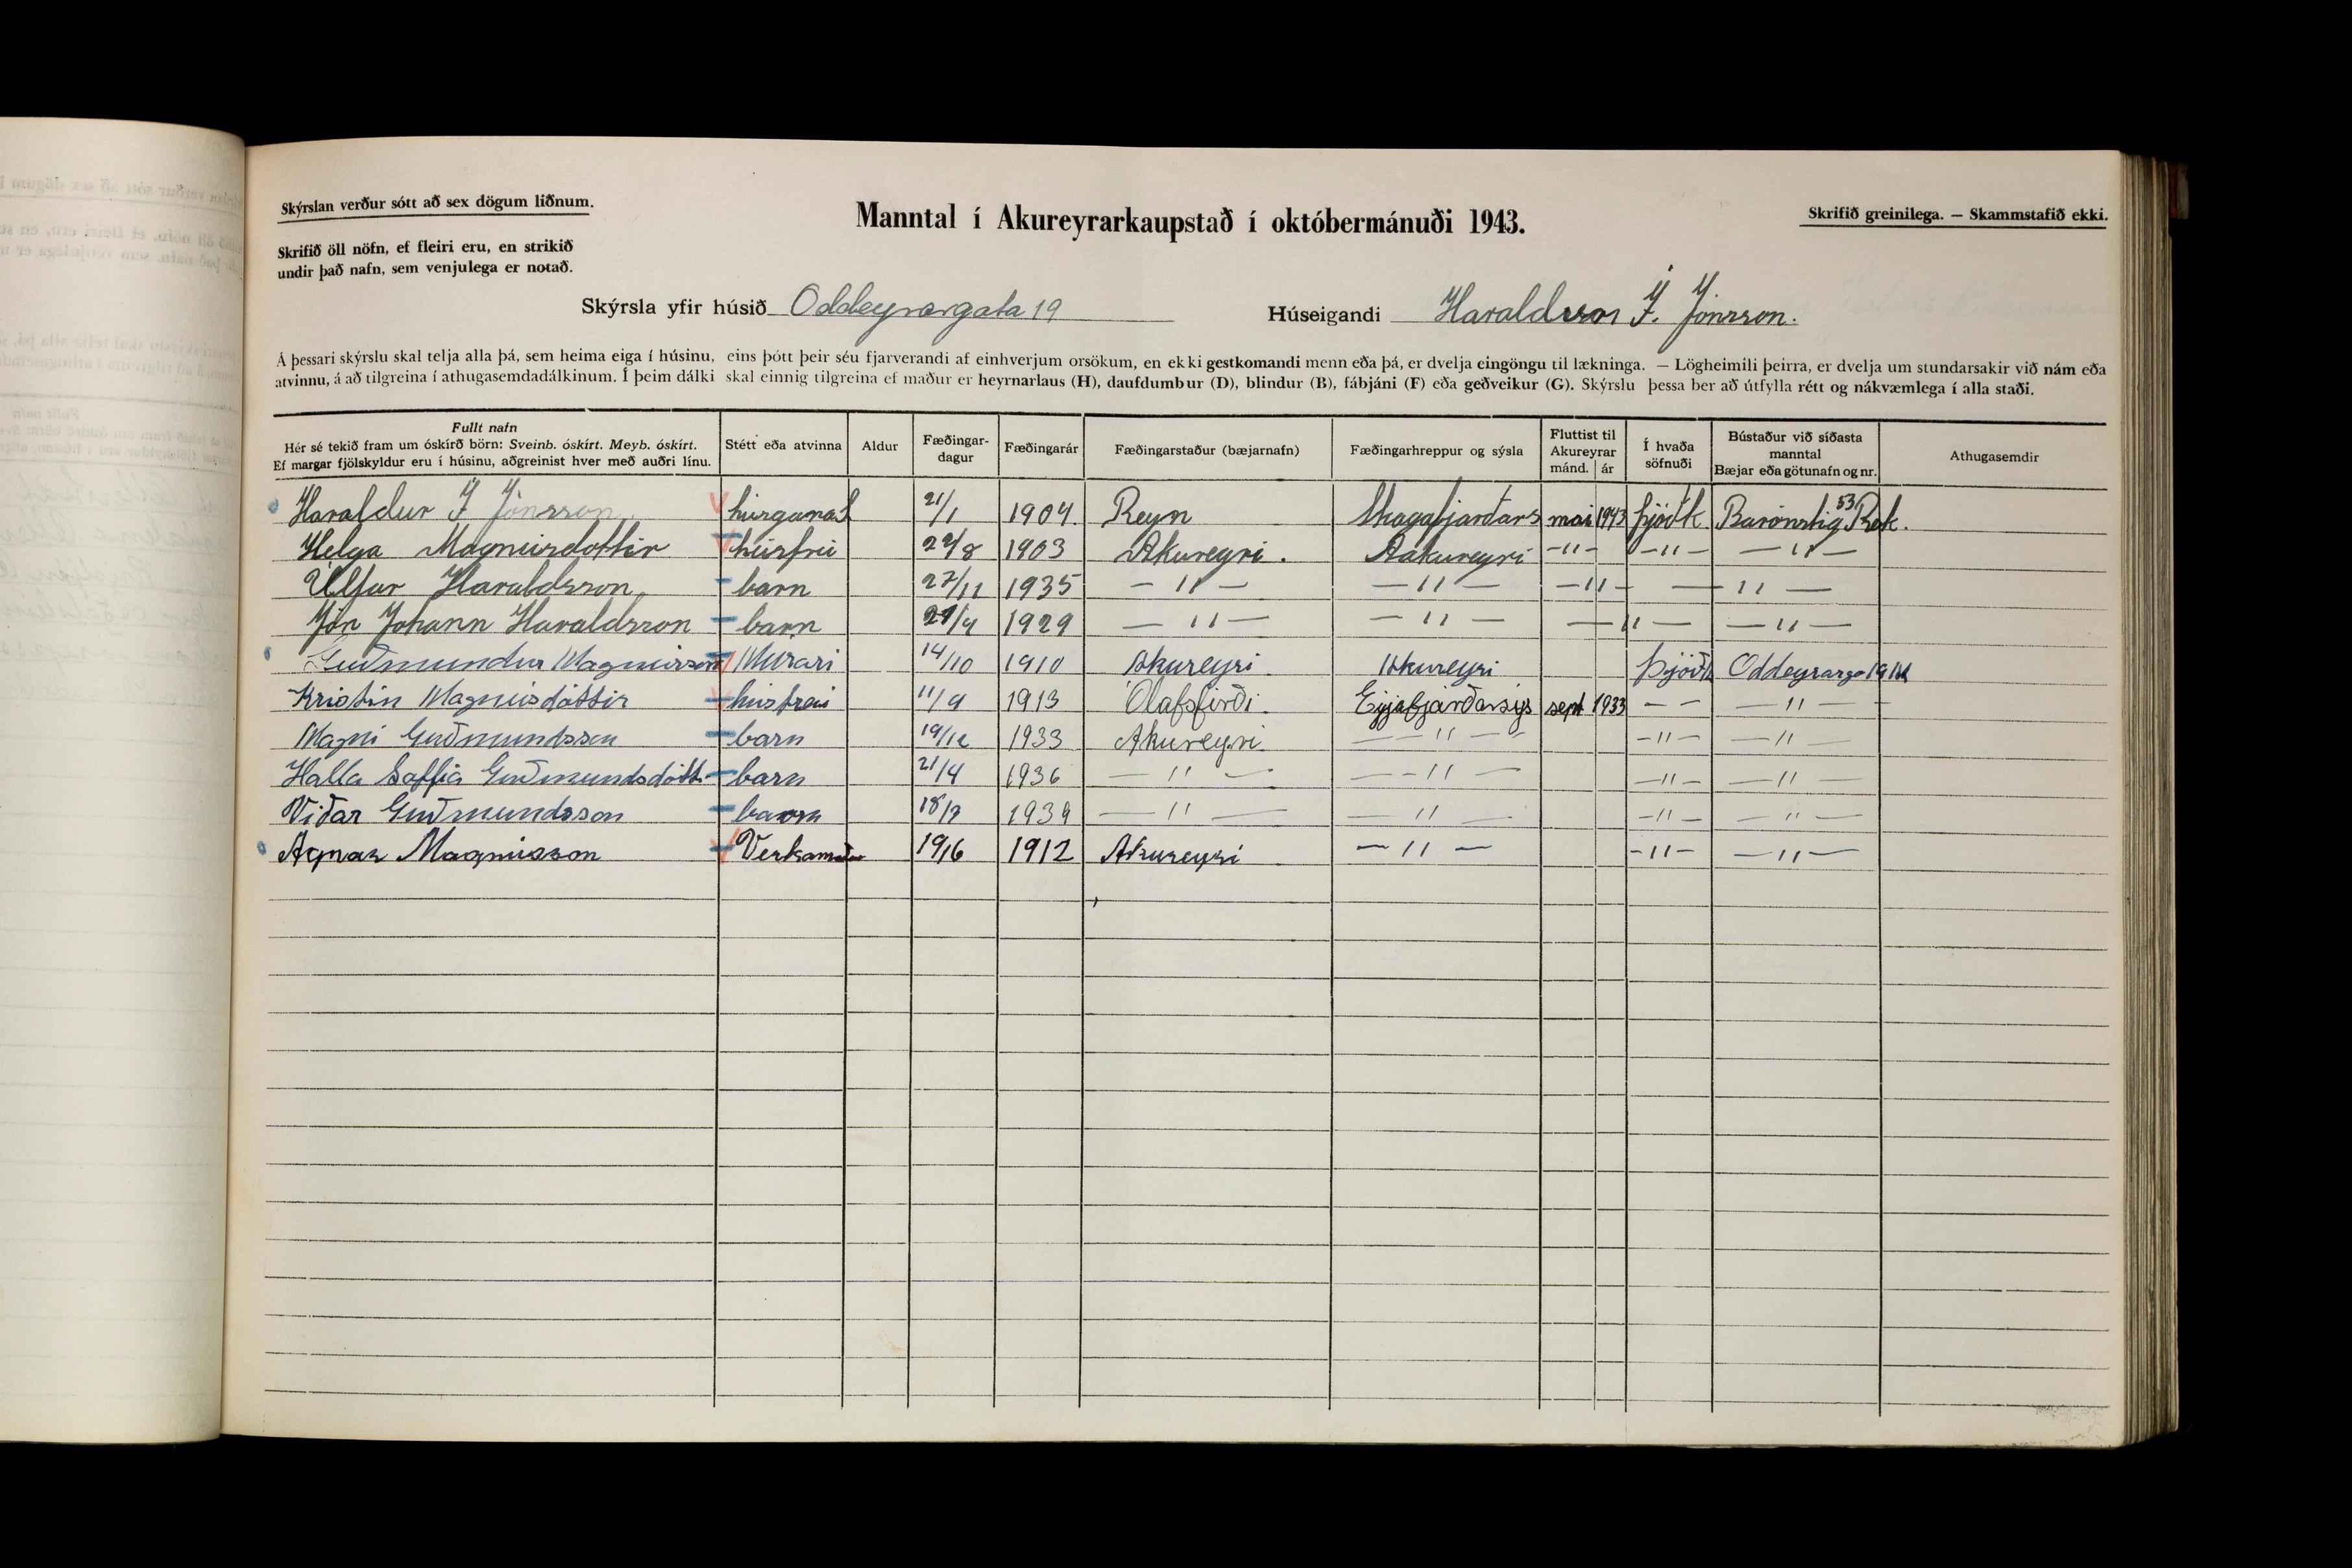 Skýrslan verður sótt að sex dögum liðnum.
Manntal í Akureyrarkaupstað í októbermánuði 1943.
Skrifið greinilega. — Skammstafið ekki.
Skrifið öll nöfn, ef fleiri eru, en strikið
undir það nafn, sem venjulega er notað.
Skýrsla yfir húsið Oddeyrargata 19 Húseigandi Í. Jónsson.
Á þessari skýrslu skal telja alla þá, sem heima eiga í húsinu, eins þótt þeir séu fjarverandi af einhverjum orsökum, en ekki gestkomandi menn eða þá, er dvelja eingöngu til lækninga. — Lögheimili þeirra, er dvelja um stundarsakir við nám eða
atvinnu, á að tilgreina í athugasemdadálkinum. Í þeim dálki skal einnig tilgreina ef maður er heyrnarlaus (H), daufdumbur (D), blindur (B), fábjáni (F) eða geðveikur (G). Skýrslu þessa ber að útfylla rétt og nákvæmlega í alla staði.
Fullt nafn
Hér sé tekið fram um óskírð börn: Sveinb. óskírt. Meyb. óskírt.
Ef margar fjölskyldur eru í húsinu, aðgreinist hver með auðri línu.
Stétt eða atvinna
Aldur
Fæðingar-
dagur
Fæðingarár
Fæðingarstaður (bæjarnafn)
Fæðingarhreppur og sýsla
Fluttist til
Akureyrar
mánd. ár
Í hvaða
söfnuði
Bústaður við síðasta
manntal
Bæjar eða götunafn og nr.
Athugasemdir
Haraldur Í Jónsson 21/1 1904 Reyn Skagafjarðars mai 1943 þjóðk. Barónstig 53 Rek.
Helga Magnúsdottir húsfrú 1903 Akureyri. Aakureyri -"- -"- -"-
Úlfar Haraldsson, barn 27/11 1935 -"- -"- -"- -"-
Jón Johann Haraldsson barn 1929 -"- -"- -"- -"-
Guðmundur Magnússon Múrari 14/10 1910 Akureyri Akureyri Oddeyrarga 19 Ak
Kristín Magnúsdóttir húsfreú 11/9 1913 Ólafsfirði. Eyjafjarðarsýs sept 1933 - - -"-
Magni Guðmundsson barn 19/12 1933 Akureyri. -"- -"- -"-
Halla Soffía Guðmundsdótt. barn 21/4 1936 -"- -"- -"- -"-
Viðar Guðmundsson barn -"- -"- -"- -"-
Agnar Magnússon Verkamaður 19/6 1912 Akureyri -"- -"- -"-